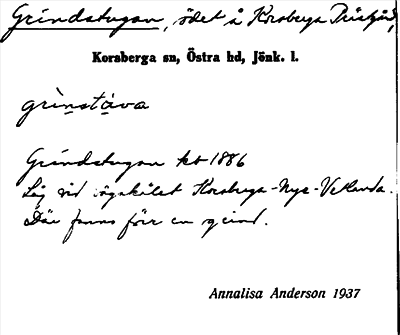 Grindstugan, ödet å Korsberga Prästgård,
Korsberga sn, Östra hd, Jönk. l.
grinstava
Grindstugan kb 1886
Låg vid vägskälet Korsberga-Nye-Vetlanda.
Där fanns förr en grind.
Annalisa Anderson 1937